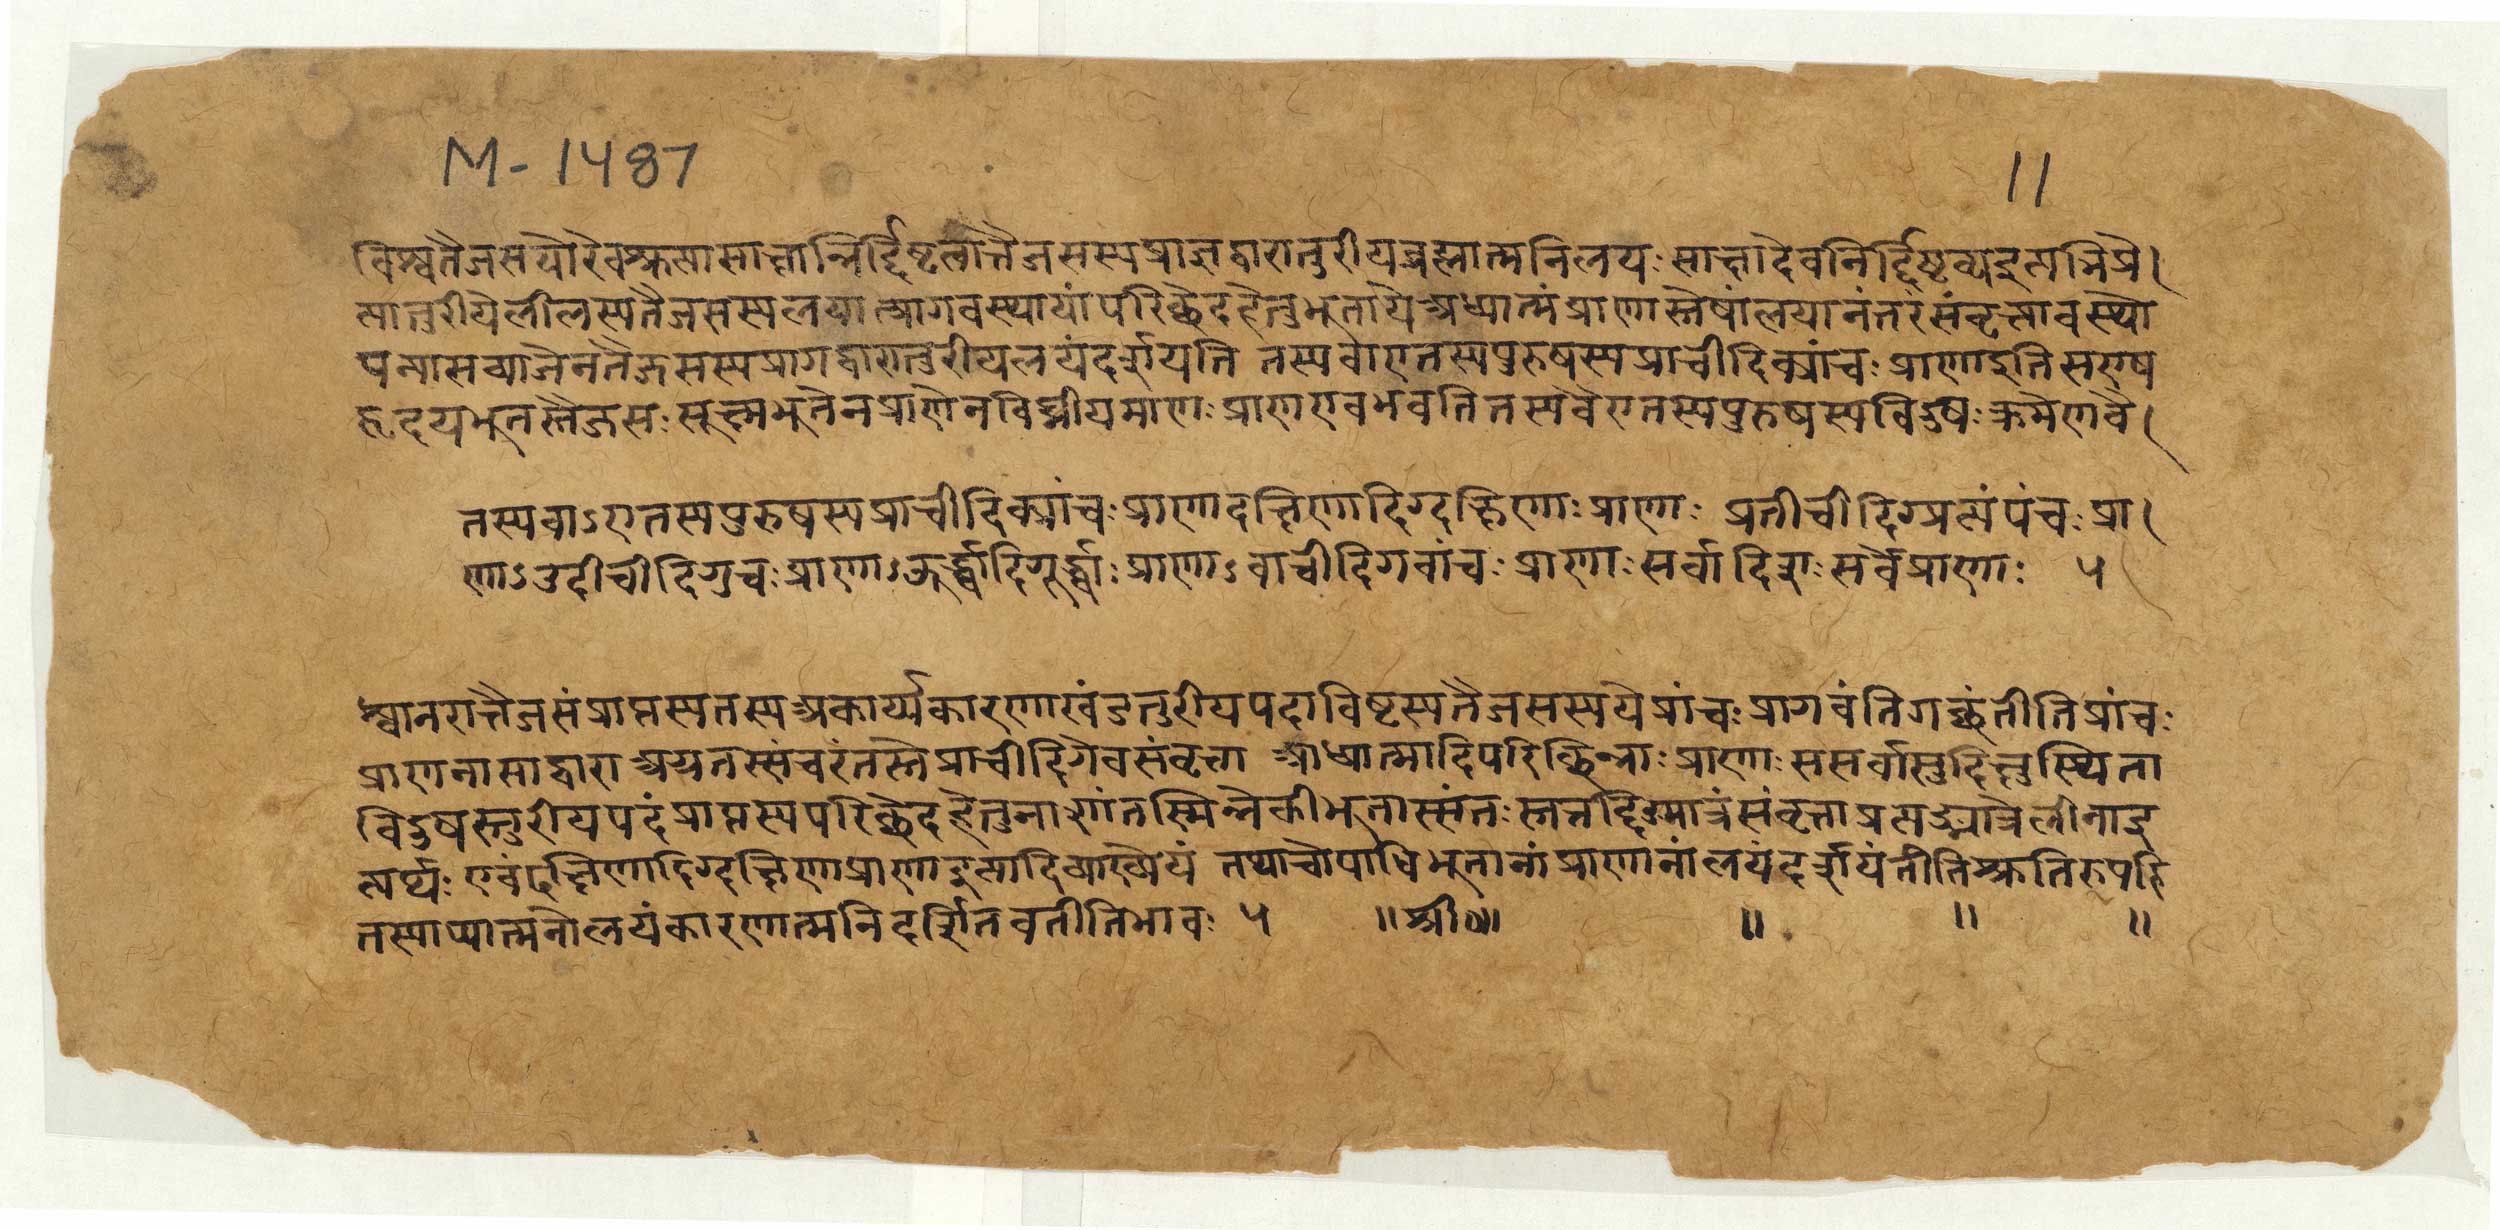 M-1487
11
विश्वतैजसयोरेवश्रुत्यासाक्षान्निर्द्दिष्टत्वात्तैजसस्यप्राज्ञद्वारातुरीयब्रह्मात्मनिलयः साक्षादेवनिर्द्दिष्टव्यइत्यभिप्रे
त्यातुरीयेलीलस्यतैजसस्यलयात्प्रागवस्थायांपरिच्छेदहेतुभुतायेअध्यात्मंप्राणास्तेषांलयानंतरंसंवृत्तावस्थो
पन्यासव्याजेनतैजसस्यप्रागद्वारातुरीयलयंदर्शयति तस्यवाएतस्यपुरुषस्यप्राचीदिक्प्रांचः प्राणाइतिसएष
हृदयभुतस्तैजसः सूक्ष्मभुतेनप्राणेनविध्रीयमाणः प्राणएवभवतितस्यवैएतस्यपुरुषस्यविदुषः क्रमेणवै
तस्यवाऽएतस्यपुरुषस्यप्राचीदिक्प्रांचः प्राणादक्षिणादिग्दक्षिणाः प्राणाः प्रतीचीदिग्प्रत्यंचः प्रा
णाऽउदीचीदिगुचः प्राणाऽऊर्द्ध्वादिगूर्द्ध्वाः प्राणाऽवाचीदिगवांचः प्राणाः सर्वादिशः सर्वेप्राणाः ५
श्वानरात्तैजसंप्राप्तस्यतस्यअकार्य्यकारणाखंडतुरीयपदाविष्टस्यतैजसस्ययेप्रांचः प्रागवंतिगच्छंतीतिप्रांचः
प्राणनासाद्वाराअयतस्संचरंतस्तेप्राचीदिगेवसंवृत्ता आध्यात्मादिपरिच्छिन्नाः प्राणाः ससर्वासुदिक्षुस्थिता
विदुषस्तुरीयपदंप्राप्तस्यपरिच्छेदहेतुनाशांतस्मिन्नेकीभुतास्संतः स्तत्तद्दिङ्मात्रंसंवृत्ताप्रत्यङ्मात्रेलीनाइ
त्यर्थः एवंदक्षिणादिग्दक्षिणाप्राणाइत्यादिव्याख्येयं तथाचोपाधिभुतानांप्राणानांलयंदर्शयंतीतिश्रुतिरुपहि
तस्याप्यात्मनोलयंकारणात्मनिदर्शितवतीतिभावः ५ ॥श्री॥ ॥ ॥ ॥